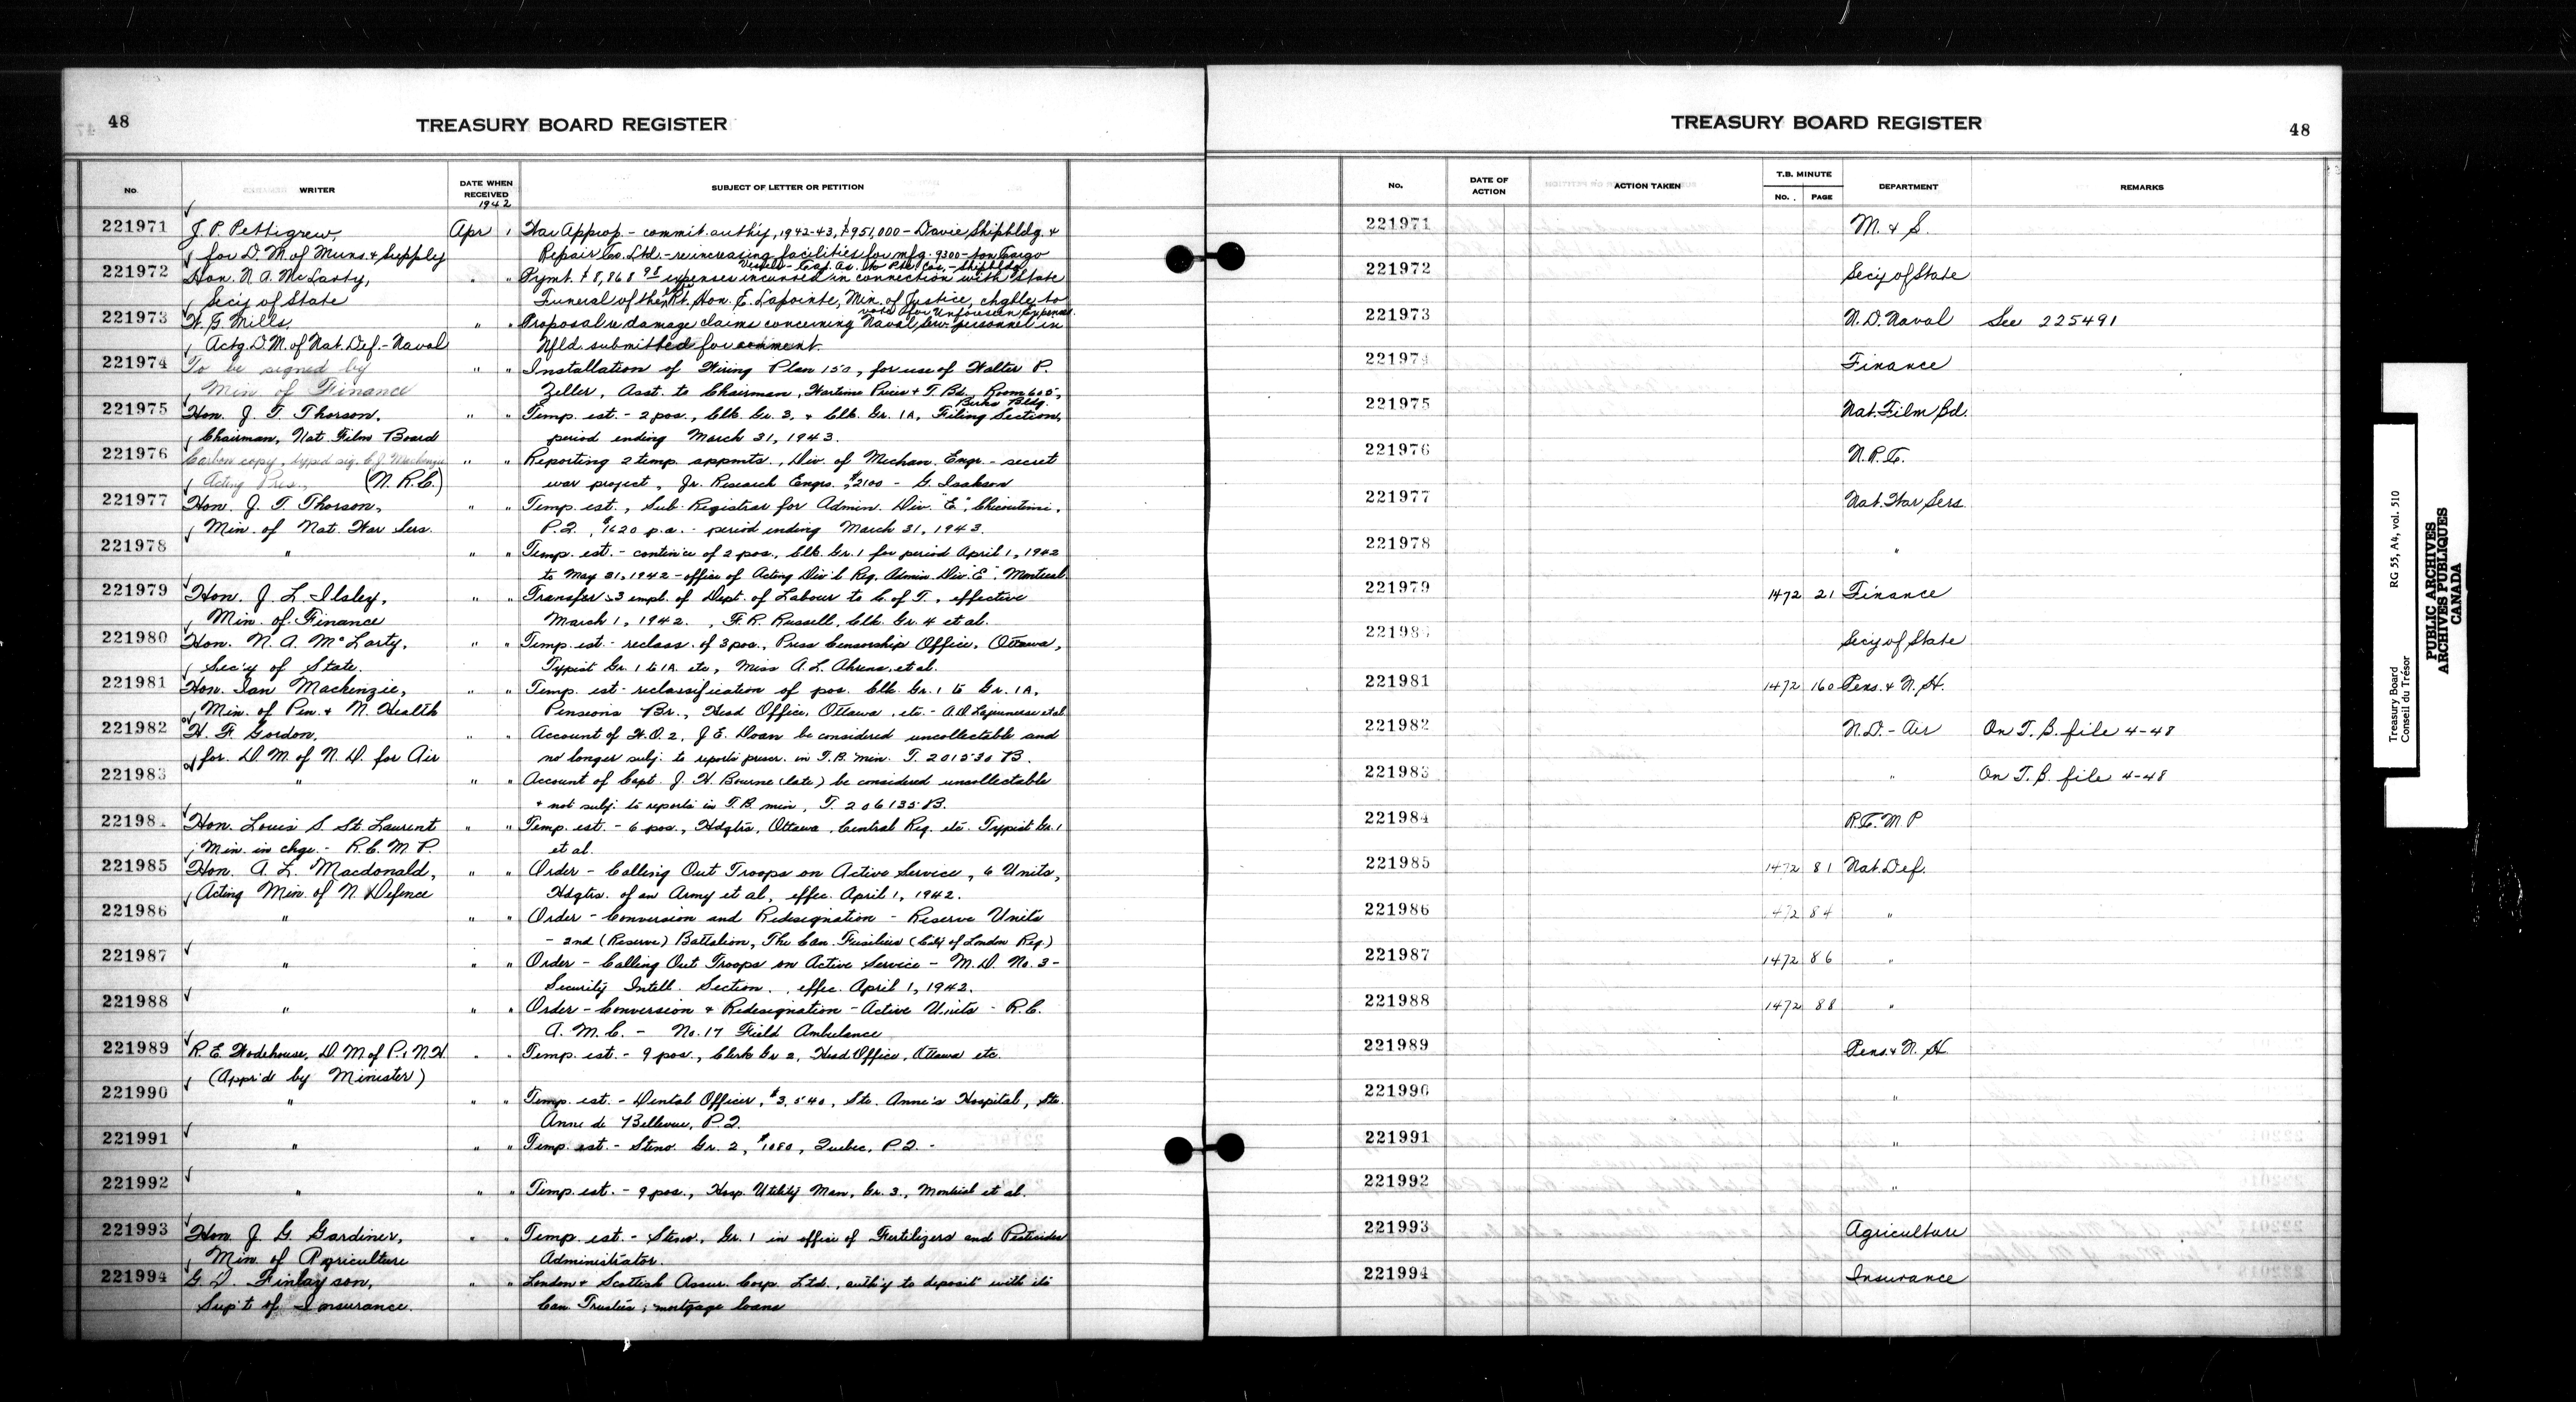 48
TREASURY BOARD REGISTER
No
WRITER
DATE WHEN RECEIVED
1942
SUBJECT OF LETTER OR PETITION
221971
J. P. Pettigrew,
Apr 1
War Approp. - commit. auth'y, 1942-43, $951,000 - Davie Shipbldg. &
for D. M. of Muns. & Supply
Repair Co. Ltd. - re increasing facilities for mfg. 9300-ton Cargo
221972
Hon. N. A. McLarty,
" "
Pymt. $8,868 expenses incurred in connection with State
Sec'y of State
Funeral of the late Rt. Hon. E. Lapointe, Min. of Justice, chgble to
vote for Unforeseen Expenses.
221973
W. G. Mills,
" "
Proposal re damage claims concerning Naval Serv. personnel in
Actg. D.M. of Nat. Def. - Naval
Nfld. submitted for comment.
221974
To be signed by
" "
Installation of Wiring Plan 150, for use of Walter P.
Min. of Finance
Zeller, Asst. to Chairman, Wartime Prices & T. Bd., Room 605,
Birks Bldg.
221975
Hon. J. T. Thorson,
" "
Temp. est. - 2 pos., Clk. Gr. 3, & Clk. Gr. 1A, Filing Section,
Chairman, Nat. Film Board
period ending March 31, 1943.
221976
Carbon copy, typed sig. C. J. Mackenzie
" "
Reporting 2 temp. appmts., Div. of Mechan. Engr. - secret
Acting Pres., (N. R. C.)
war project, Jr. Research Engrs. $2100 - G. Isakson
221977
Hon. J. T. Thorson,
" "
Temp. est., Sub-Registrar for Admin. Div. "E", Chicoutimi,
Min. of Nat. War Sers.
P.Q., $1620 p.a. - period ending March 31, 1943.
221978
"
" "
Temp. est. - contin'ce of 2 pos., Clk. Gr. 1 for period April 1, 1942
to May 31, 1942 - office of Acting Div'l Reg. Admin. Div. "E", Montreal.
221979
Hon. J. L. Ilsley,
" "
Transfer - 3 empl. of Dept. of Labour to C. of T., effective
Min. of Finance
March 1, 1942. , F. R. Russell, Clk. Gr. 4 et al.
221980
Hon. N. A. McLarty,
" "
Temp. est. - reclass. of 3 pos., Press Censorship Office, Ottawa,
Sec'y of State.
Typist Gr. 1 to 1A etc, Miss A. L. Ahrens, et al.
221981
Hon. Ian Mackenzie,
" "
Temp. est - reclassification of pos. Clk. Gr. 1 to Gr. 1A,
Min. of Pen. & N. Health
Pensions Br., Head Office, Ottawa, etc. - A. D. Lajeunesse et al
221982
H. F. Gordon,
"
Account of W.O. 2, J. E. Doan be considered uncollectable and
for D. M. of N. D. for Air
no longer subj. to reports prescr. in T.B. min. T. 201530 B.
221983
"
" "
Account of Capt. J. H. Bourne (late) be considered uncollectable
& not subj. to reports in T.B. min, T. 206135 B.
221984
Hon. Louis S. St. Laurent
" "
Temp. est. - 6 pos., Hdqtrs, Ottawa, Central Reg. etc. Typist Gr. 1
Min. in chge. - R. C. M. P.
et al.
221985
Hon. A. L. Macdonald,
" "
Order - Calling Out Troops on Active Service, 6 Units,
Acting Min. of N. Defence
Hdqtrs. of an Army et al, effec. April 1, 1942.
221986
"
" "
Order - Conversion and Redesignation - Reserve Units
- 2nd (Reserve) Battalion, The Can. Fusiliers (City of London Reg.)
221987
"
" "
Order - Calling Out Troops on Active Service - M. D. No. 3 -
Security Intell. Section., effec. April 1, 1942.
221988
"
" "
Order - Conversion & Redesignation - Active Units - R. C.
A. M. C. - No. 17 Field Ambulance
221989
R. E. Wodehouse, D. M. of P. & N. H.
" "
Temp. est. - 9 pos., Clerk Gr 2, Head Office, Ottawa etc.
(Appr'd by Minister)
221990
"
" "
Temp. est. - Dental Officer, $3,540, Ste. Anne's Hospital, Ste.
Anne de Bellevue, P.Q.
221991
"
" "
Temp. est. - Steno. Gr. 2, $1080, Quebec, P.Q. -
221992
"
" "
Temp. est. - 9 pos., Hosp. Utility Man, Gr. 3., Montreal et al.
221993
Hon. J. G. Gardiner,
" "
Temp. est. - Steno., Gr. 1 in office of Fertilizers and Pesticides
Min. of Agriculture
Administrator.
221994
G. D. Finlayson,
" "
London & Scottish Assur. Corp. Ltd., auth'y to deposit with its
Sup't of Insurance.
Can. Trustees, mortgage loans
TREASURY BOARD REGISTER
48
No.
DATE OF ACTION
ACTION TAKEN
T.B. MINUTE
No. PAGE
DEPARTMENT
REMARKS
221971 M. & S.
221972 Sec'y of State
221973 N. D. Naval See 225491
221974 Finance
221975 Nat. Film Bd.
221976 N. R. C.
221977 Nat. War Sers.
221978 "
221979 1472 21 Finance
221980 Sec'y of State
221981 1472 160 Pens. & N. H.
221982 N.D. - Air On T. B. file 4-48
221983 " On T. B. file 4-48
221984 R. C. M P
221985 1472 81 Nat. Def.
221986 1472 84 "
221987 1472 86 "
221988 1472 88 "
221989 Pens. & N. H.
221990 "
221991 "
221992 "
221993 Agriculture
221994 Insurance
Treasury Board
Conseil du Trésor
RG 55, A4, vol. 510
PUBLIC ARCHIVES
ARCHIVES PUBLIQUES
CANADA